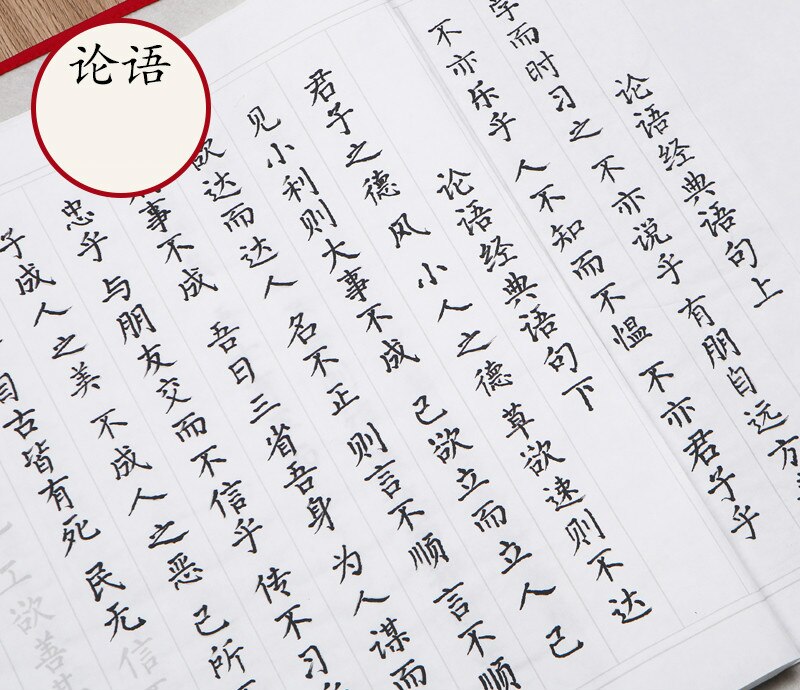 论语
论语经典语句上
学而时习之 不亦说乎 有朋自远方
不亦乐乎 人不知而不愠 不亦君子乎
论语经典语句下
君子之德风 小人之德草 欲速则不达
见小利则大事不成 己欲立而立人 己
欲达而达人 名不正 则言不顺 言不顺
事不成 吾日三省吾身 为人谋而
忠乎 与朋友交而不信乎 传不习
子成人之美 不成人之恶 己所
自古皆有死 民无
信
工欲善